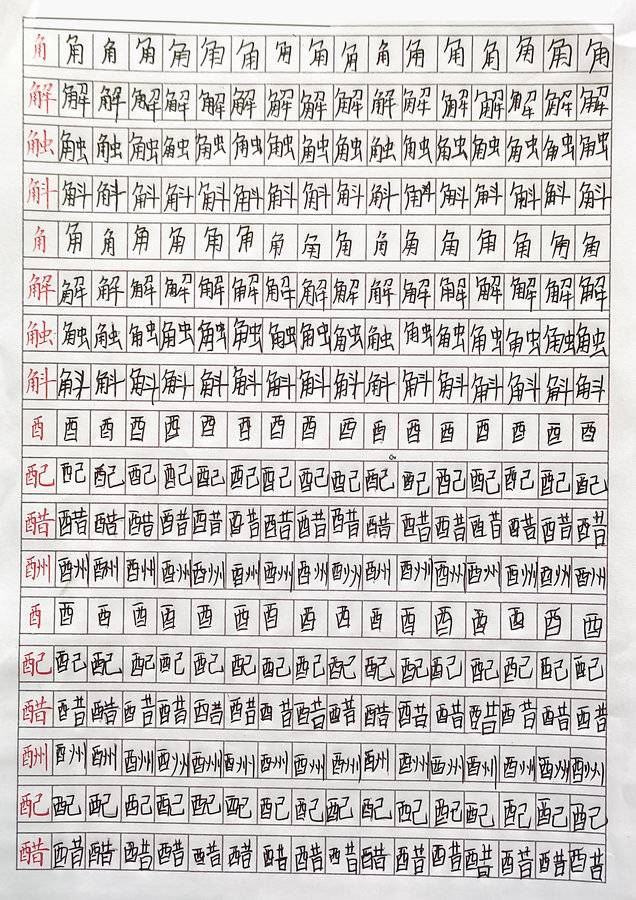 角角角角角角角角角角角角角角角角角
解解解解解解解解解解解解解解解解解
触触触触触触触触触触触触触触触触触
斛斛斛斛斛斛斛斛斛斛斛斛斛斛斛斛斛
角角角角角角角角角角角角角角角角角
解解解解解解解解解解解解解解解解解
触触触触触触触触触触触触触触触触触
斛斛斛斛斛斛斛斛斛斛斛斛斛斛斛斛斛
酉酉酉酉酉酉酉酉酉酉酉酉酉酉酉酉酉
配配配配配配配配配配配配配配配配配
醋醋醋醋醋醋醋醋醋醋醋醋醋醋醋醋醋
酬酬酬酬酬酬酬酬酬酬酬酬酬酬酬酬酬
酉酉酉酉酉酉酉酉酉酉酉酉酉酉酉酉酉
配配配配配配配配配配配配配配配配配
醋醋醋醋醋醋醋醋醋醋醋醋醋醋醋醋醋
酬酬酬酬酬酬酬酬酬酬酬酬酬酬酬酬酬
配配配配配配配配配配配配配配配配配
醋醋醋醋醋醋醋醋醋醋醋醋醋醋醋醋醋